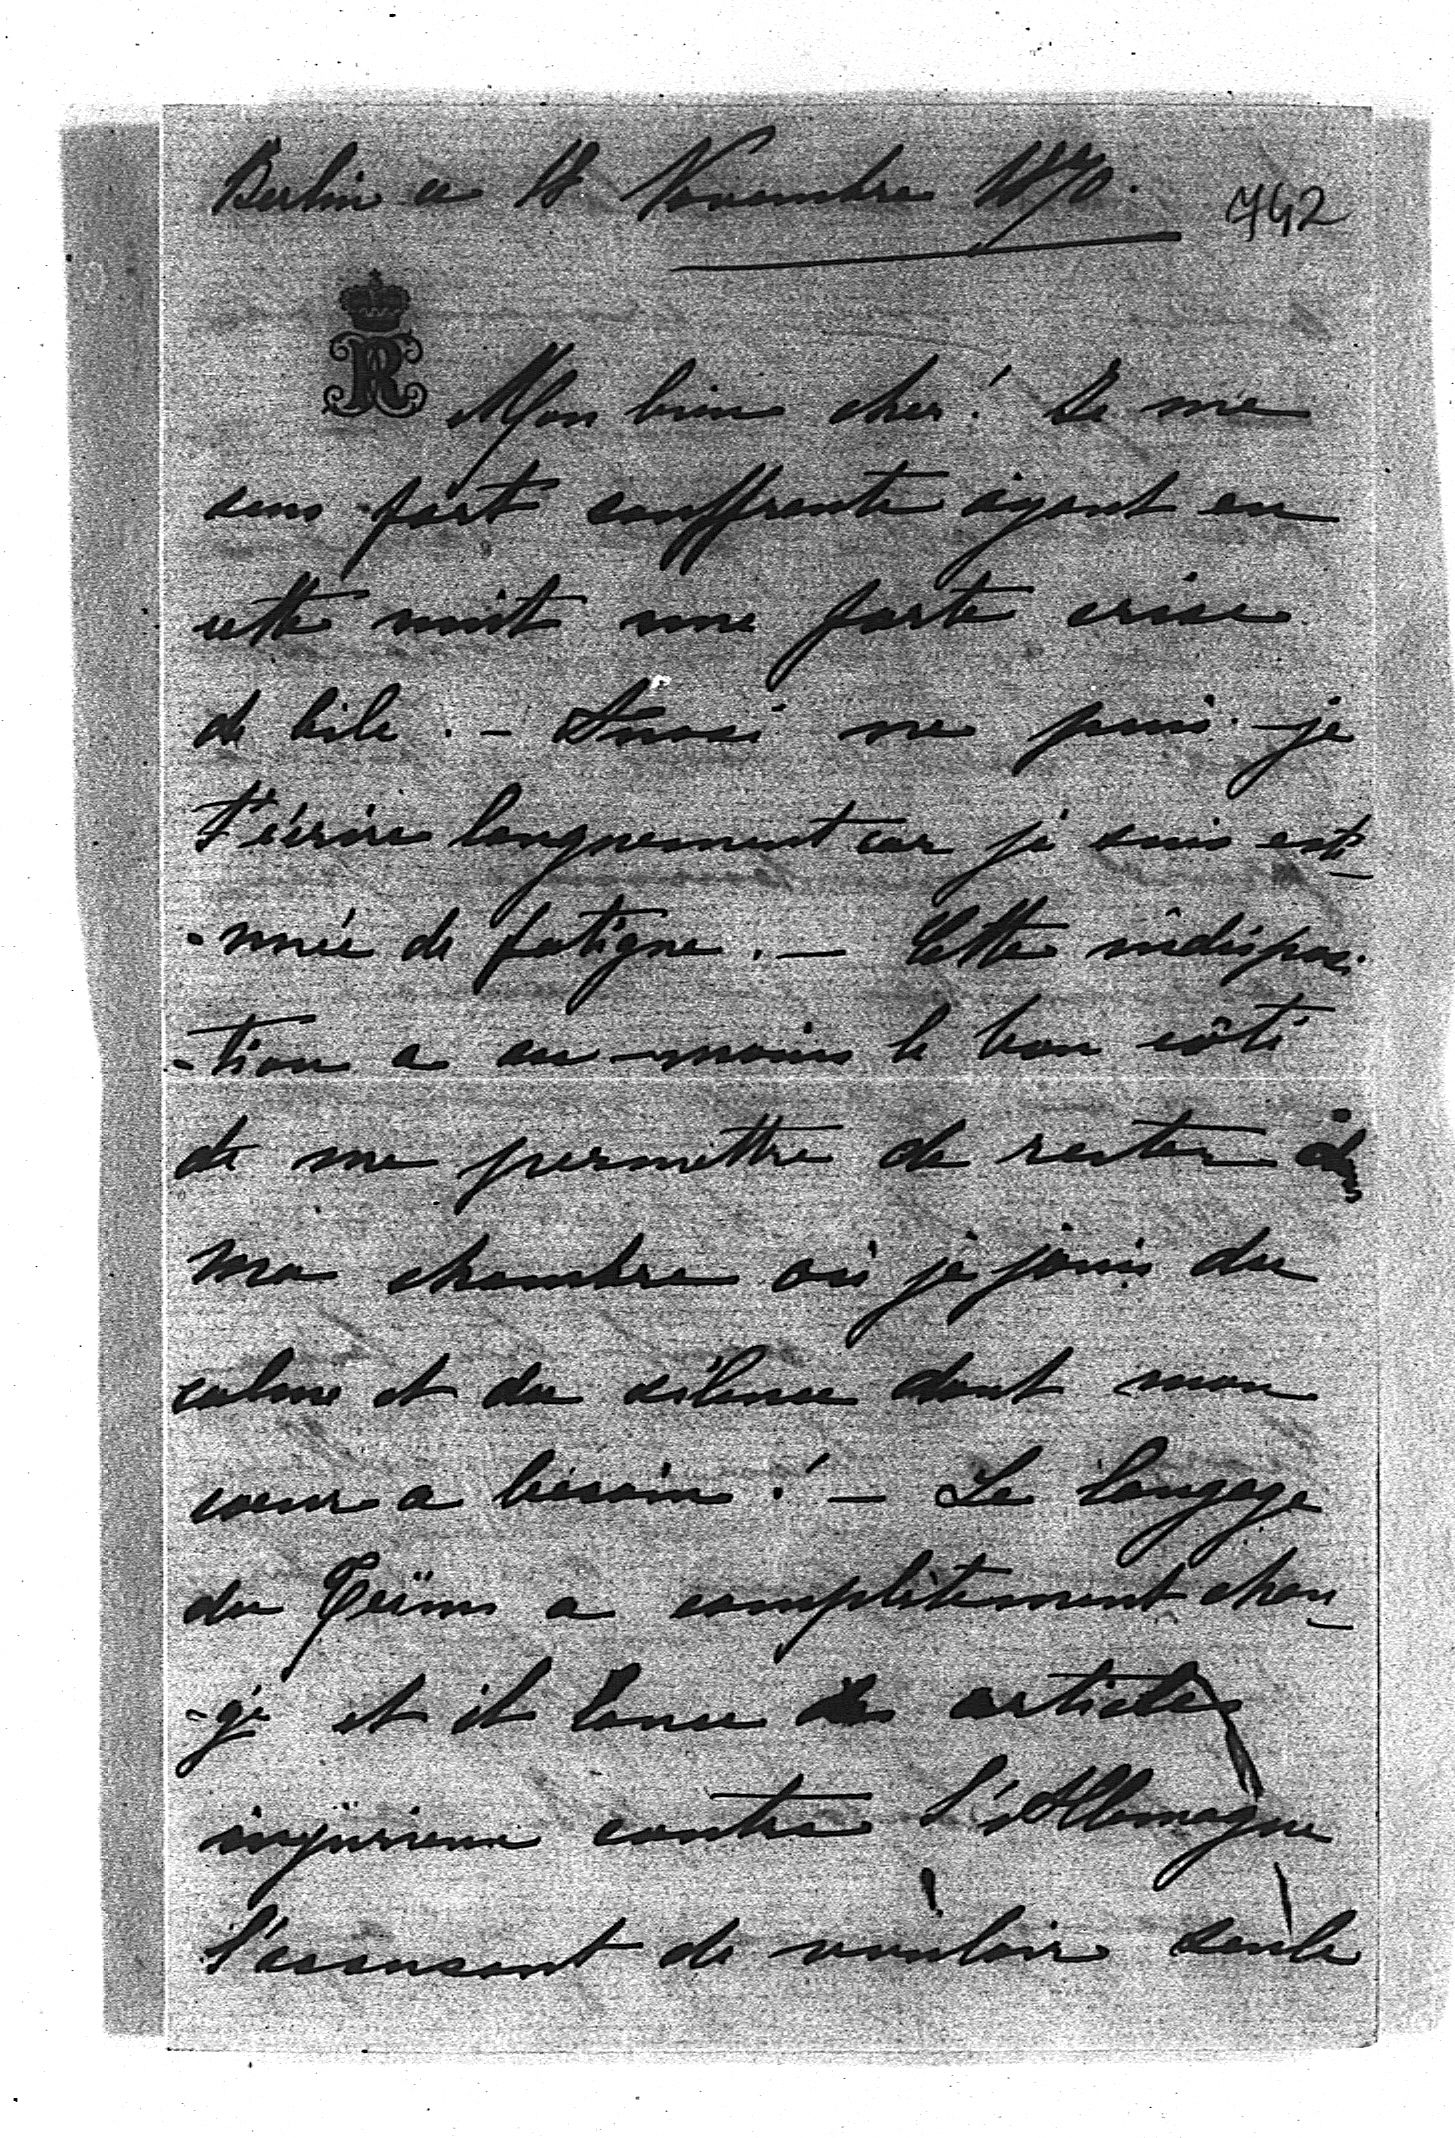 Berlin ce 18 Novembre 1870.
742
R
Mon bien cher! Je me
sens fort souffrante ayant eu
cette nuit une forte crise
de bile. – Aussi ne puis-je
t'écrire longuement car je suis exté-
-nuée de fatigue. – Cette indisposi-
-tion a au moins le bon côté
de me permettre de rester
ma chambre où je jouis du
calme et du silence dont mon
coeur a besoin! – Le langage
du Teïms a complètement chan-
-gé et il lance des articles
injurieux contre l'Allemagne
l'accusant de vouloir seule